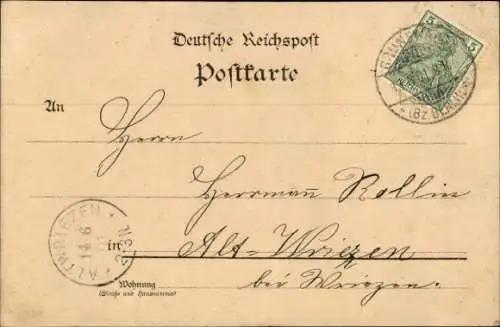 Deutsche Reichspost
Postkarte
5 5
(Bz. BERLIN)
An
Herrn
Herrmann Rollin
ALTWRIEZEN
14 6
in Alt-Wriezen
bei Wriezen.
Wohnung
(Straße und Hausnummer)